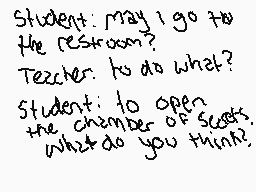 Student: may I go to
the restroom?
Teacher: to do what?
Student: to open
the chamber of secrets.
what do you think?